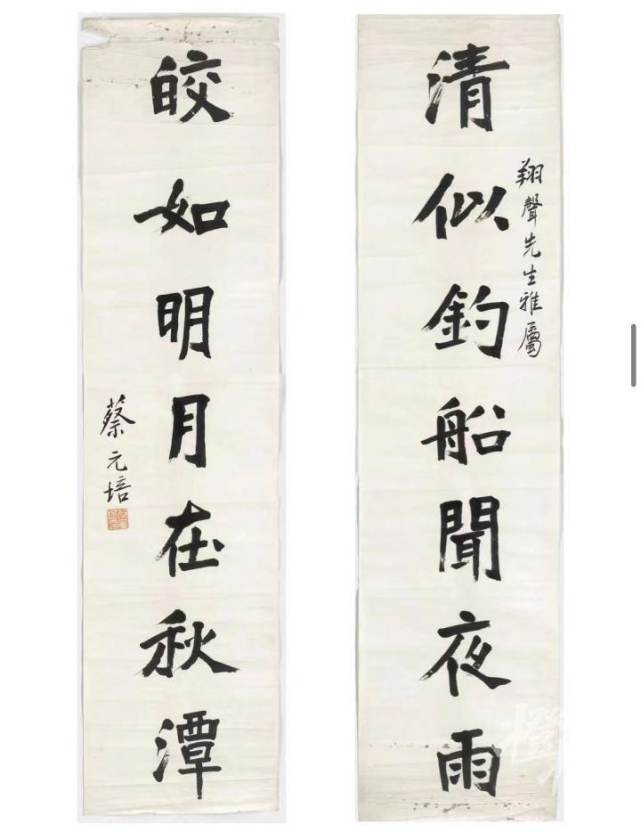 清似釣船聞夜雨
翔聲先生雅屬
皎如明月在秋潭
蔡元培